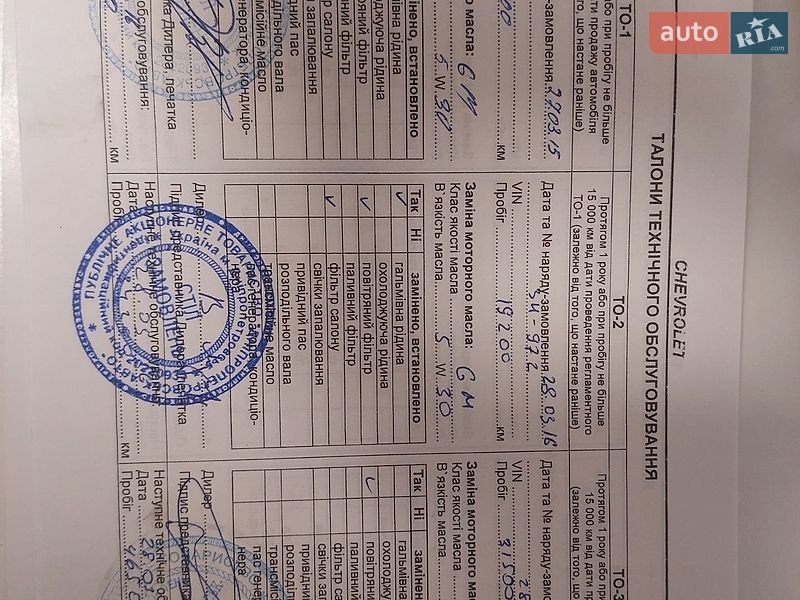 auto RIA.com
CHEVROLET
ТАЛОНИ ТЕХНІЧНОГО ОБСЛУГОВУВАННЯ
ТО-1
або при пробігу не більше
ти продажу автомобіля
то, що настане раніше)
-замовлення 27.03.15
км
масла: GM
5 W 30
замінено, встановлено
гальмівна рідина
охолоджуюча рідина
фільтр
фільтр
р салону
запалювання
ідний пас
дільного вала
місійне масло
енератора, кондиціо-
ка Дилера, печатка
обслуговування:
км
ТО-2
Протягом 1 року або при пробігу не більше
15 000 км від дати проведення регламентного
ТО-1 (залежно від того, що настане раніше)
Дата та № наряду-замовлення 28.03.16
VIN
Пробіг 19200 км
Заміна моторного масла:
Клас якості масла GM
В`язкість масла 5 W 30
Так Ні замінено, встановлено
гальмівна рідина
охолоджуюча рідина
повітряний фільтр
паливний фільтр
фільтр салону
свічки запалювання
привідний пас
розподільного вала
трансмісійне масло
пас генератора, кондиціо-
нера
Дилер
Підпис представника Дилера, печатка
Наступне технічне обслуговування:
Дата
Пробіг км
ПУБЛІЧНЕ АКЦІОНЕРНЕ ТОВА
Україна
СТП
ТО-3
Протягом 1 року або при
15 000 км від дати п
(залежно від того, що
Дата та № наряду-замо
VIN
Пробіг 31500
Заміна моторного масла
Клас якості масла
В`язкість масла
Так Ні замінен
гальмівна
охолоджу
повітряни
паливний
фільтр са
свічки за
привідни
розподіл
трансміс
пас генер
нера
Дилер
Підпис представника
Наступне технічне об
Дата
Пробіг